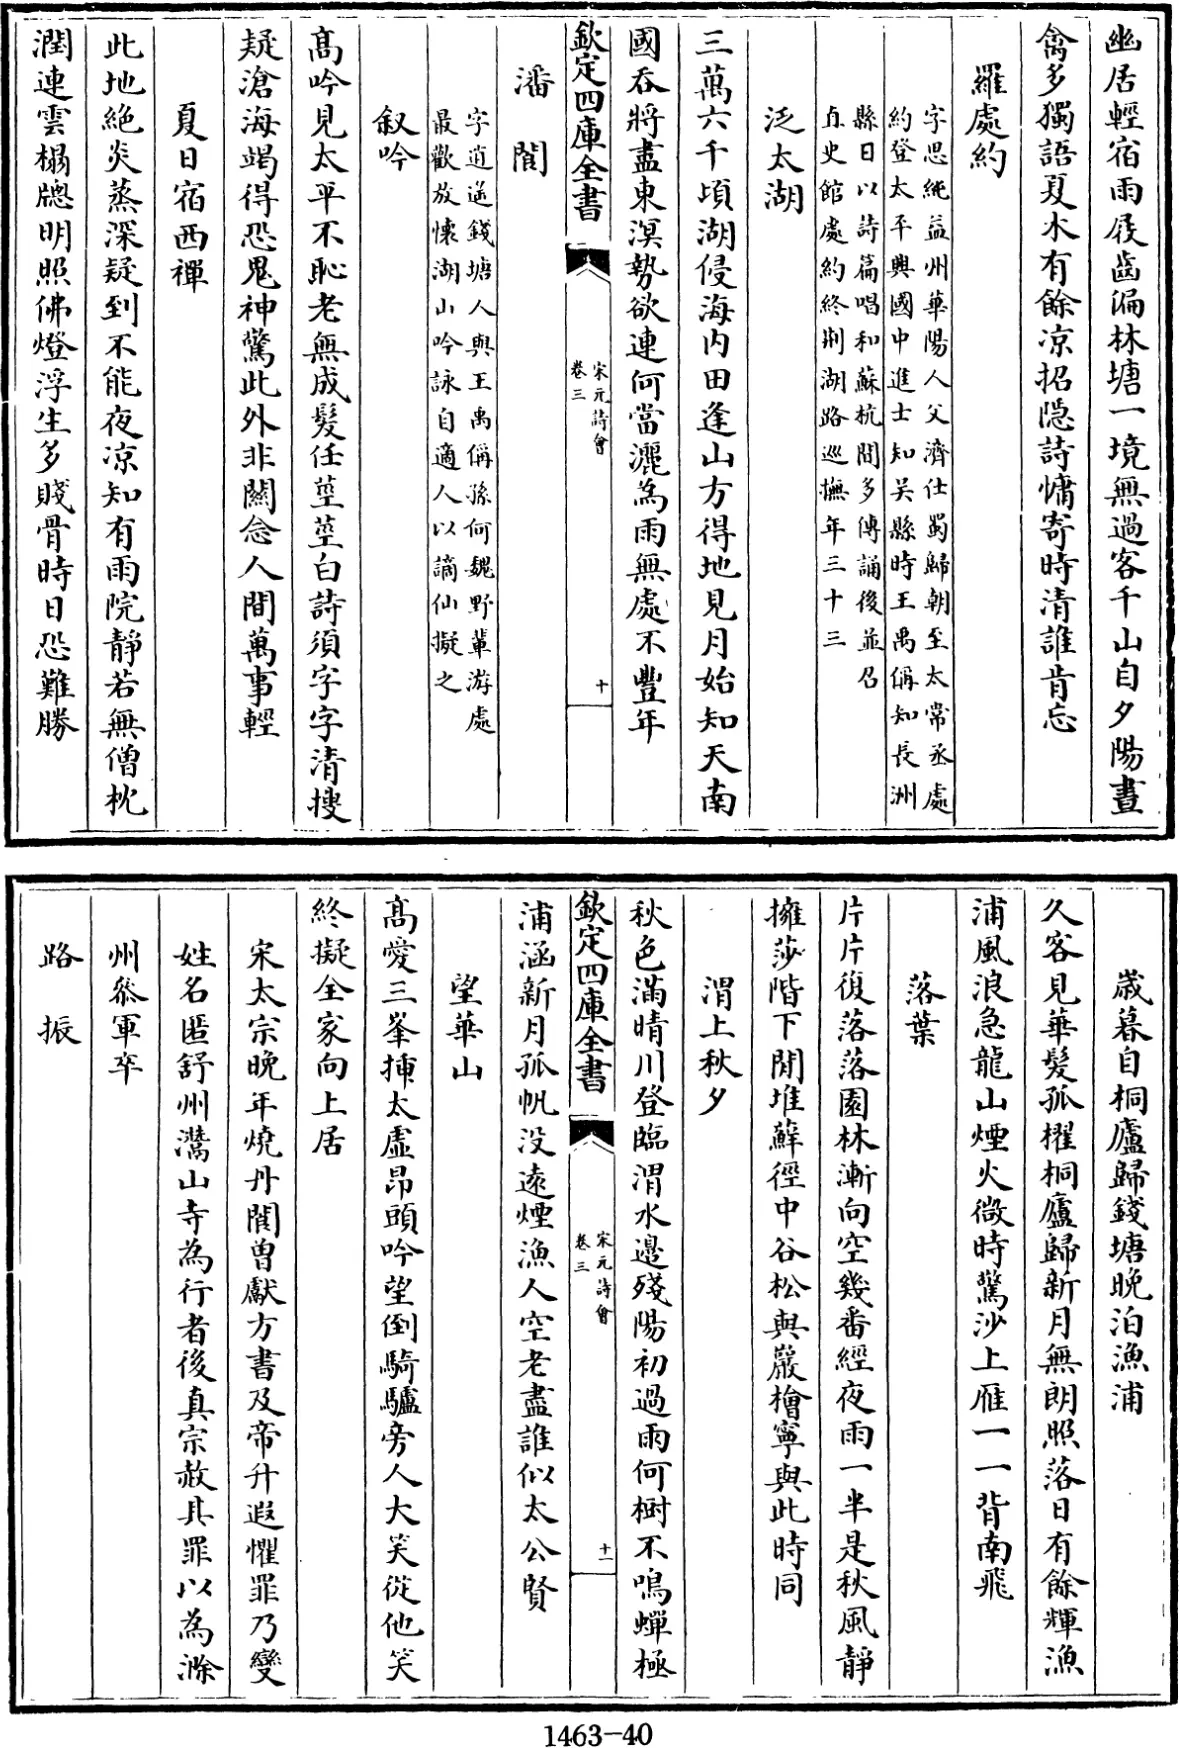 幽居輕宿雨屐齒漏林塘一境無過客千山自夕陽晝
禽多獨語夏木有餘凉招隠詩慵寄時清誰肯忘
羅處約
字思純益州華陽人父濟仕蜀歸朝至太常丞處
約登太平興國中進士知吴縣時王禹偁知長洲
縣日以詩篇唱和蘇杭間多傳誦後並召
直史館處約終荆湖路巡撫年三十三
泛太湖
三萬六千頃湖侵海内田逢山方得地見月始知天南
國吞將盡東溟勢欲連何當灑為雨無處不豐年
欽定四庫全書
宋元詩會
卷三
十
潘閬
字逍遥錢塘人與王禹偁孫何魏野輩游處
最歡放懷湖山吟詠自適人以謫仙擬之
叙吟
高吟見太平不恥老無成髮任莖莖白詩須字字清搜
疑滄海竭得恐鬼神驚此外非關念人間萬事輕
夏日宿西禪
此地絶炎蒸深疑到不能夜凉知有雨院靜若無僧枕
潤連雲榻牕明照佛燈浮生多賤骨時日恐難勝
歲暮自桐廬歸錢塘晚泊漁浦
久客見華髮孤櫂桐廬歸新月無朗照落日有餘輝漁
浦風浪急龍山煙火微時驚沙上雁一一背南飛
落葉
片片復落落園林漸向空幾番經夜雨一半是秋風靜
擁莎階下閒堆蘚徑中谷松與巖檜寧與此時同
渭上秋夕
秋色滿晴川登臨渭水邉殘陽初過雨何樹不鳴蟬極
欽定四庫全書
宋元詩會
卷三
十一
浦涵新月孤帆没遠煙漁人空老盡誰似太公賢
望華山
高愛三峯揷太虛昂頭吟望倒騎驢旁人大笑從他笑
終擬全家向上居
宋太宗晚年燒丹閬曾獻方書及帝升遐懼罪乃變
姓名匿舒州潛山寺為行者後真宗赦其罪以為滁
州叅軍卒
路振
1463-40